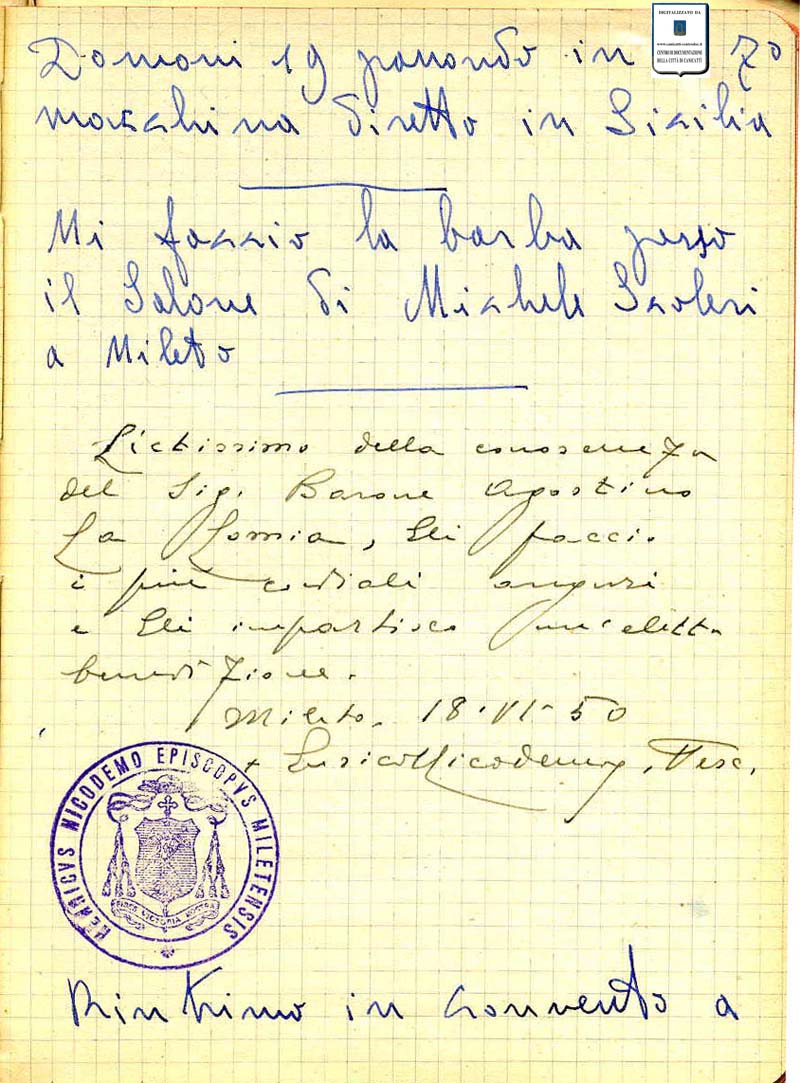 DIGITALIZZATO DA
CENTRO DI DOCUMENTAZIONE
DELLA CITTÀ DI CANICATTÌ
70
Domani 19 passando in
macchina diretto in Sicilia
Mi faccio la barba presso
il Salone di Michele Scoleri
a Mileto
Lietissimo della conoscenza
del Sig. Barone Agostino
La Lomia, Gli faccio
i più cordiali auguri
e Gli impartisco un'eletta
benedizione.
Mileto. 18·VI-50
+ Enrico Nicodemo, Vesc.
HENRICVS NICODEMO EPISCOPVS MILETENSIS
VICTORIA NOSTRA
Rintrimo in convento a